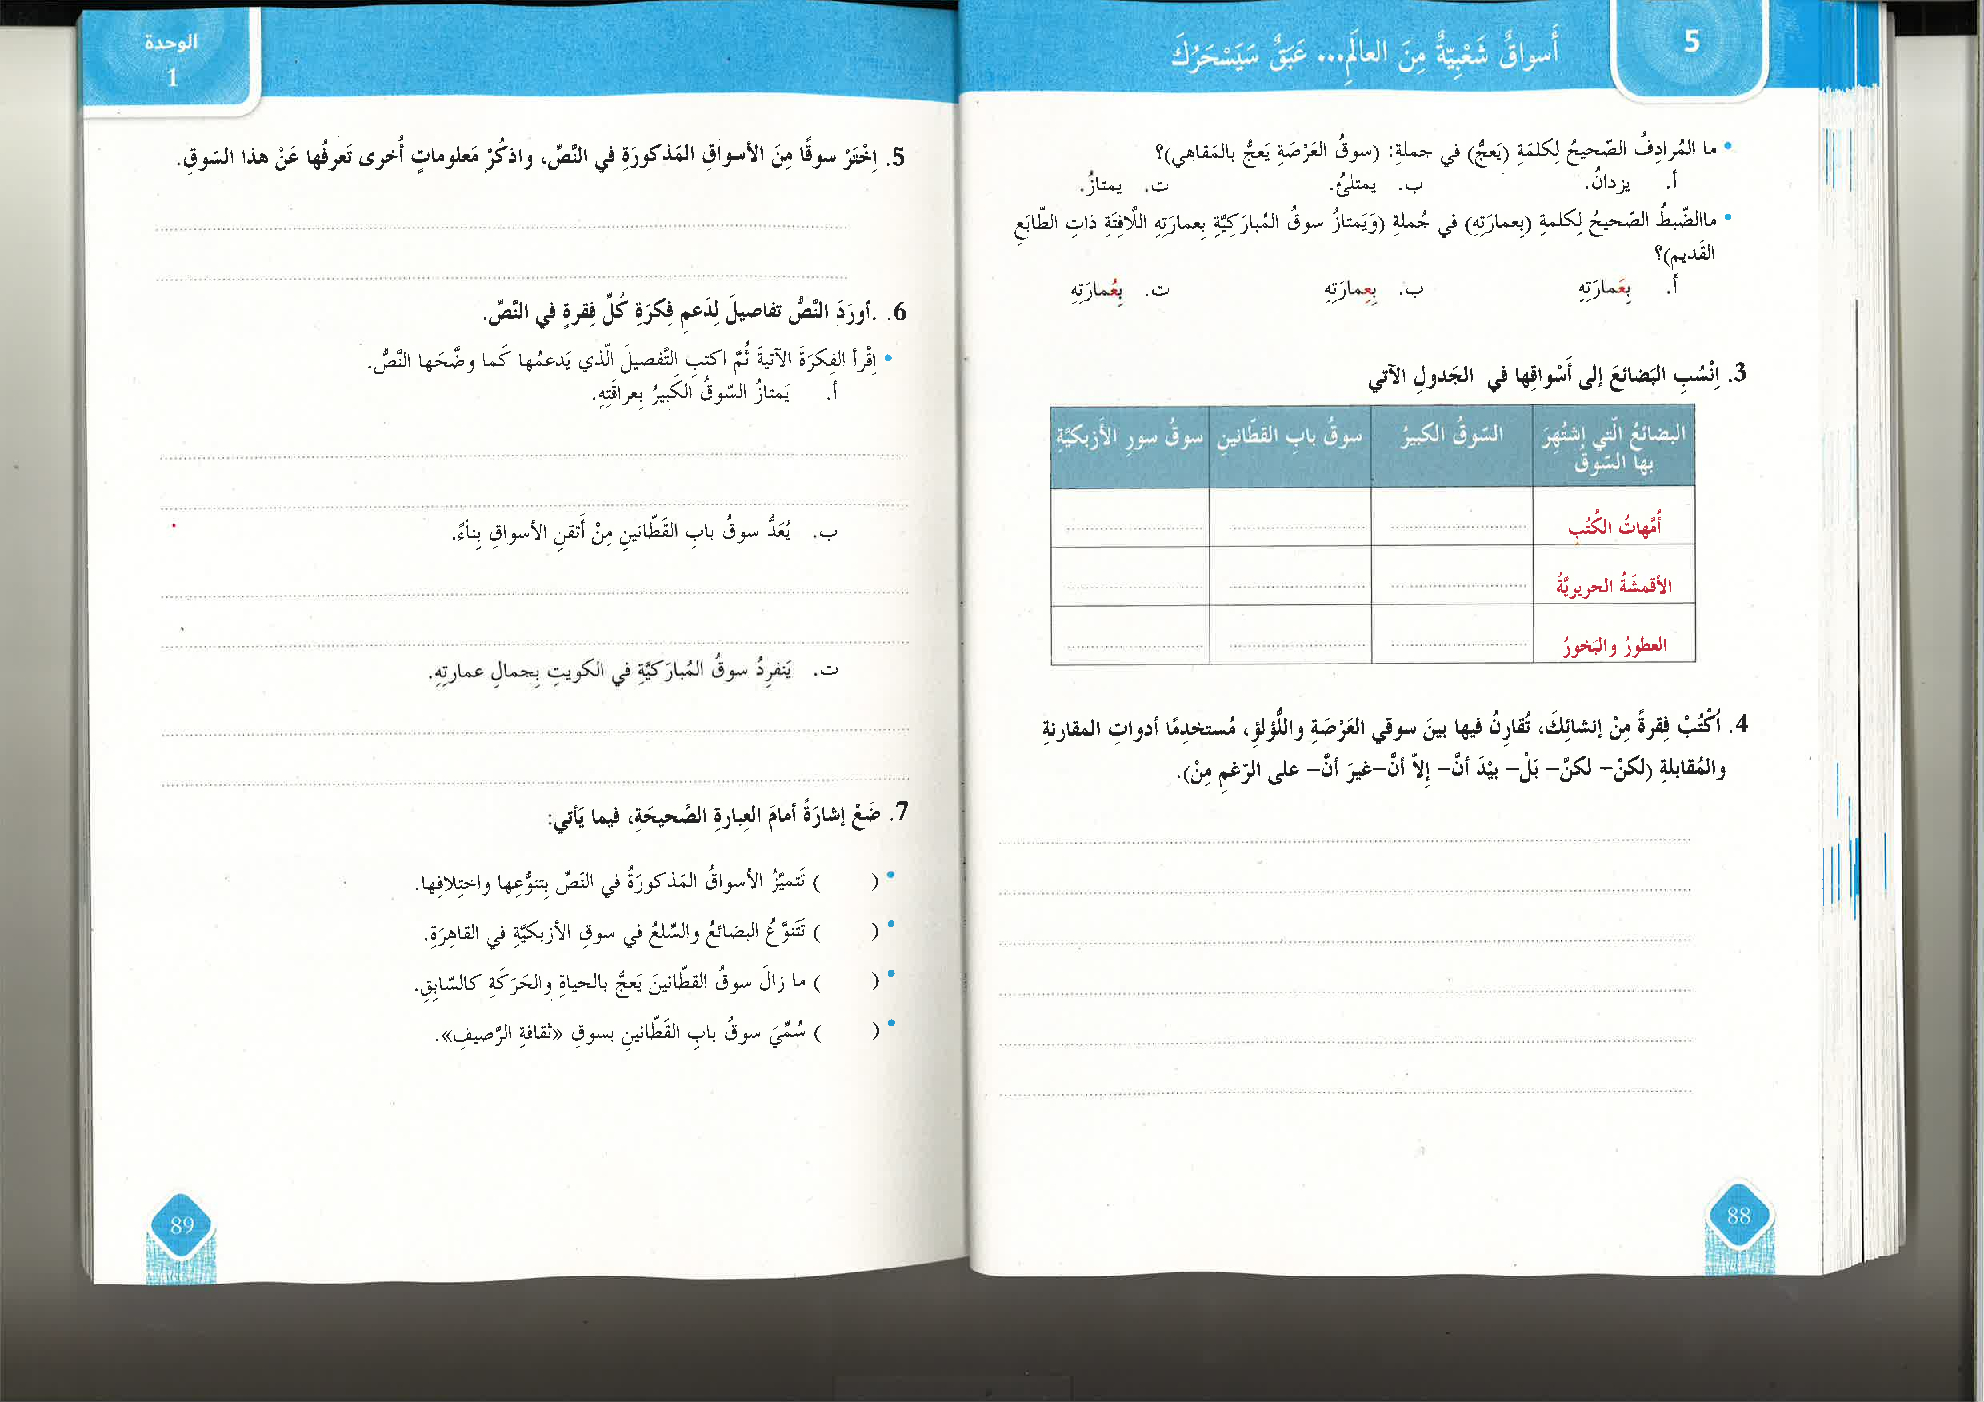 5
أَسواقٌ شَعْبِيّةٌ مِنَ العالَمِ... عَبَقٌ سَيَسْحَرُكَ
• ما المُرادِفُ الصّحيحُ لِكلمَةِ (يَعجُّ) في جملةِ: (سوقُ العَرْصَةِ يَعجُّ بالمَقاهي)؟
أ. يزدانُ.
ب. يمتلئُ.
ت. يمتازُ.
• ماالضّبطُ الصّحيحُ لِكلمةِ (بِعمارَتِهِ) في جُملةِ (وَيَمتازُ سوقُ المُبارَكيَّةِ بِعمارَتِهِ اللّافِتَةِ ذاتِ الطّابَعِ
القَديم)؟
أ. بِعَمارَتِهِ
ب. بِعِمارَتِهِ
ت. بِعُمارَتِهِ
3. اِنْسُبِ البَضائعَ إلى أَسْواقِها في الجَدولِ الآتي
البضائعُ الّتي اِشتُهِرَ
بها السّوقُ
السّوقُ الكبيرُ
سوقُ بابِ القطّانينِ
سوقُ سورِ الأَزبكيَّةِ
أُمَّهاتُ الكُتُبِ
الأقمشَةُ الحريريَّةُ
العطورُ والبَخورُ
4. اُكْتُبْ فِقرةً مِنْ إنشائِكَ، تُقارِنُ فيها بينَ سوقي العَرْصَةِ واللُّؤلؤِ، مُستخدِمًا أدواتِ المقارنةِ
والمُقابلةِ (لكنْ- لكنَّ- بَلْ- بيْدَ أنَّ- إلاّ أنَّ-غيرَ أنَّ- على الرّغمِ مِنْ).
88
الوحدة
1
5. اِخْتَرْ سوقًا مِنَ الأسواقِ المَذكورَةِ في النَّصِّ، واذكُرْ مَعلوماتٍ أُخرى تَعرفُها عَنْ هذا السّوقِ.
6. .أورَدَ النَّصُّ تفاصيلَ لِدَعمِ فِكرَةِ كُلِّ فِقرةٍ في النَّصِّ.
• اِقْرأ الفِكرَةَ الآتيةَ ثُمَّ اكتبِ التَّفصيلَ الّذي يَدعمُها كَما وضَّحَها النَّصُّ.
أ. يَمتازُ السّوقُ الكَبيرُ بِعراقَتِهِ.
ب. يُعَدُّ سوقُ بابِ القَطّانَينِ مِنْ أَتقنِ الأسواقِ بِناءً.
ت. يَنفرِدُ سوقُ المُبارَكيَّةِ في الكويتِ بِجمالِ عمارتِهِ.
7. ضَعْ إشارَةً أمامَ العِبارةِ الصَّحيحَةِ، فيما يَأتي:
• ( ) تَتميَّزُ الأسواقُ المَذكورَةُ في النَصِّ بِتنوُّعِها واختِلافِها.
• ( ) تَتَنوَّعُ البضائعُ والسِّلعُ في سوقِ الأزبكيَّةِ في القاهِرَةِ.
• ( ) ما زالَ سوقُ القطّانينَ يَعجُّ بالحياةِ والحَرَكَةِ كالسّابِقِ.
• ( ) سُمِّيَ سوقُ بابِ القَطّانينِ بسوقِ «ثقافةِ الرَّصيفِ».
89